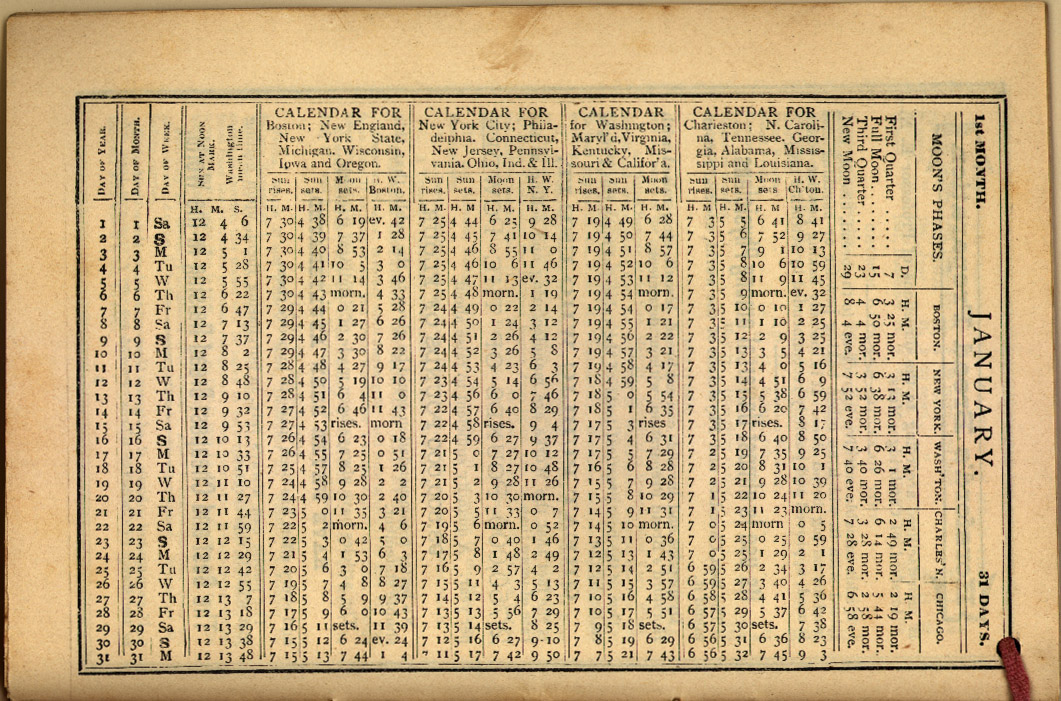 1st MONTH. JANUARY. 31 DAYS.
MOON'S PHASES. BOSTON. NEW YORK. WASH'TON. CHARLES'N. CHICAGO.
D. H. M. H. M. H. M. H. M. H. M.
First Quarter .... 7 3 25 mor. 3 13 mor. 3 1 mor. 2 49 mor. 2 19 mor.
Full Moon ........ 15 6 50 mor. 6 38 mor. 6 26 mor. 6 14 mor. 5 44 mor.
Third Quarter .... 23 4 4 mor. 3 52 mor. 3 40 mor. 3 28 mor. 2 58 mor.
New Moon ...... 29 8 4 eve. 7 52 eve. 7 40 eve. 7 28 eve. 6 58 eve.
DAY OF YEAR.
DAY OF MONTH.
DAY OF WEEK.
SUN AT NOON
MARK.
Washington
mean time.
CALENDAR FOR
Boston; New England,
New York State,
Michigan, Wisconsin,
Iowa and Oregon.
CALENDAR FOR
New York City; Phila-
delphia, Connecticut,
New Jersey, Pennsvi-
vania. Ohio, Ind. & Ill.
CALENDAR FOR
for Washington;
Maryl'd, Virginia,
Kentucky, Mis-
souri & Califor'a.
CALENDAR FOR
Charleston; N. Caroli-
na, Tennessee, Geor-
gia, Alabama, Missis-
sippi and Louisiana.
Sun Sun Moon H. W. Sun Sun Moon H. W. Sun Sun Moon Sun Sun Moon H. W.
rises. sets. sets. Boston. rises. sets. sets. N. Y. rises. sets. sets. rises. sets. sets Ch'ton.
H. M. S. H. M. H. M. H. M. H. M. H. M. H. M. H. M. H. M. H. M. H. M. H. M. H. M. H. M. H. M. H. M.
1 1 Sa 12 4 6 7 30 4 38 6 19 ev. 42 7 25 4 44 6 25 9 28 7 19 4 49 6 28 7 3 5 5 6 41 8 41
2 2 S 12 4 34 7 30 4 39 7 37 1 28 7 25 4 45 7 41 10 14 7 19 4 50 7 44 7 3 5 6 7 52 9 27
3 3 M 12 5 1 7 30 4 40 8 53 2 14 7 25 4 46 8 55 11 0 7 19 4 51 8 57 7 3 5 7 9 1 10 13
4 4 Tu 12 5 28 7 30 4 41 10 5 3 0 7 25 4 46 10 6 11 46 7 19 4 52 10 6 7 3 5 8 10 6 10 59
5 5 W 12 5 55 7 30 4 42 11 14 3 46 7 25 4 47 11 13 ev. 32 7 19 4 53 11 12 7 3 5 8 11 9 11 45
6 6 Th 12 6 22 7 30 4 43 morn. 4 33 7 25 4 48 morn. 1 19 7 19 4 54 morn. 7 3 5 9 morn. ev. 32
7 7 Fr 12 6 47 7 29 4 44 0 21 5 28 7 24 4 49 0 22 2 14 7 19 4 54 0 17 7 3 5 10 0 10 1 27
8 8 Sa 12 7 13 7 29 4 45 1 27 6 26 7 24 4 50 1 24 3 12 7 19 4 55 1 21 7 3 5 11 1 10 2 25
9 9 S 12 7 37 7 29 4 46 2 30 7 26 7 24 4 51 2 26 4 12 7 19 4 56 2 22 7 3 5 12 2 9 3 25
10 10 M 12 8 2 7 29 4 47 3 30 8 22 7 24 4 52 3 26 5 8 7 19 4 57 3 21 7 3 5 13 3 5 4 21
11 11 Tu 12 8 25 7 28 4 48 4 27 9 17 7 24 4 53 4 23 6 3 7 19 4 58 4 17 7 3 5 13 4 0 5 16
12 12 W 12 8 48 7 28 4 50 5 19 10 10 7 23 4 54 5 14 6 56 7 18 4 59 5 8 7 3 5 14 4 51 6 9
13 13 Th 12 9 10 7 28 4 51 6 4 11 0 7 23 4 56 6 0 7 46 7 18 5 0 5 54 7 3 5 15 5 38 6 59
14 14 Fr 12 9 32 7 27 4 52 6 46 11 43 7 22 4 57 6 40 8 29 7 18 5 1 6 35 7 3 5 16 6 20 7 42
15 15 Sa 12 9 53 7 27 4 53 rises. morn 7 22 4 58 rises. 9 4 7 17 5 3 rises 7 3 5 17 rises. 8 17
16 16 S 12 10 13 7 26 4 54 6 23 0 18 7 22 4 59 6 27 9 37 7 17 5 4 6 31 7 3 5 18 6 40 8 50
17 17 M 12 10 33 7 26 4 55 7 25 0 51 7 21 5 0 7 27 10 12 7 17 5 5 7 29 7 2 5 19 7 35 9 25
18 18 Tu 12 10 51 7 25 4 57 8 25 1 26 7 21 5 1 8 27 10 48 7 16 5 6 8 28 7 2 5 20 8 31 10 1
19 19 W 12 11 10 7 24 4 58 9 28 2 2 7 21 5 2 9 28 11 26 7 15 5 7 9 28 7 2 5 21 9 28 10 39
20 20 Th 12 11 27 7 24 4 59 10 30 2 40 7 20 5 3 10 30 morn. 7 15 5 8 10 29 7 1 5 22 10 24 11 20
21 21 Fr 12 11 44 7 23 5 0 11 35 3 21 7 20 5 5 11 33 0 7 7 14 5 9 11 31 7 1 5 23 11 23 morn.
22 22 Sa 12 11 59 7 22 5 2 morn. 4 6 7 19 5 6 morn. 0 52 7 14 5 10 morn. 7 0 5 24 morn 0 5
23 23 S 12 12 15 7 22 5 3 0 42 5 0 7 18 5 7 0 40 1 46 7 13 5 11 0 36 7 0 5 25 0 25 0 59
24 24 M 12 12 29 7 21 5 4 1 53 6 3 7 17 5 8 1 48 2 49 7 12 5 13 1 43 7 0 5 25 1 29 2 1
25 25 Tu 12 12 42 7 20 5 6 3 0 7 18 7 16 5 9 2 57 4 2 7 12 5 14 2 51 6 59 5 26 2 34 3 17
26 26 W 12 12 55 7 19 5 7 4 8 8 27 7 15 5 11 4 3 5 13 7 11 5 15 3 57 6 59 5 27 3 40 4 26
27 27 Th 12 13 7 7 18 5 8 5 9 9 37 7 14 5 12 5 4 6 23 7 10 5 16 4 58 6 58 5 28 4 41 5 36
28 28 Fr 12 13 18 7 17 5 9 6 0 10 43 7 13 5 13 5 56 7 29 7 10 5 17 5 51 6 57 5 29 5 37 6 42
29 29 Sa 12 13 29 7 16 5 11 sets. 11 39 7 13 5 14 sets. 8 25 7 9 5 18 sets. 6 57 5 30 sets. 7 38
30 30 S 12 13 38 7 15 5 12 6 24 ev. 24 7 12 5 16 6 27 9 10 7 8 5 19 6 29 6 56 5 31 6 36 8 23
31 31 M 12 13 48 7 15 5 13 7 44 1 4 7 11 5 17 7 42 9 50 7 7 5 21 7 43 6 56 5 32 7 45 9 3